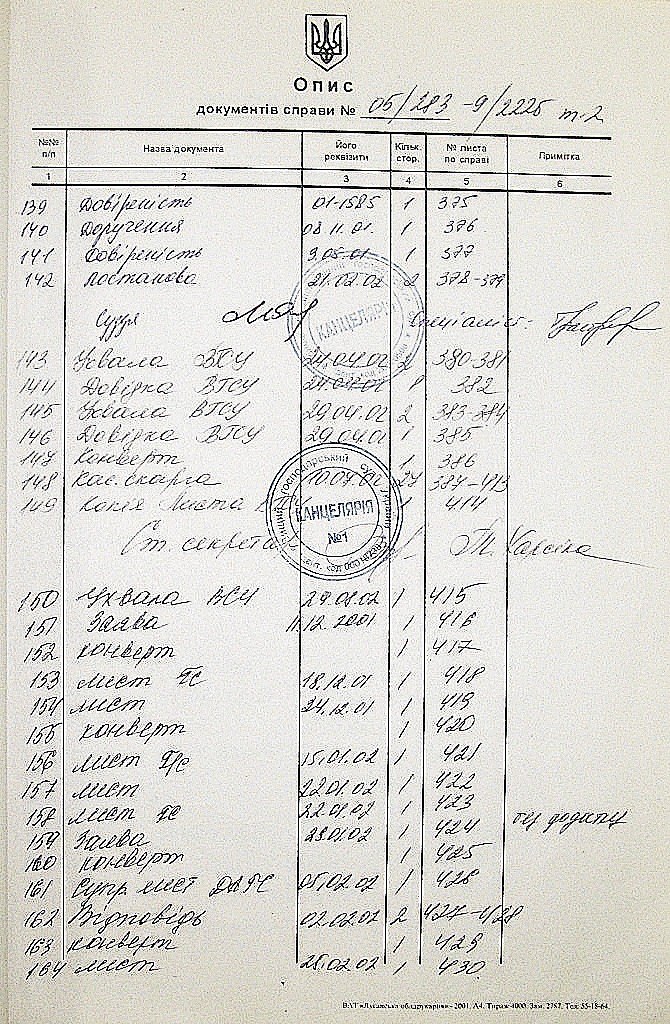 Опис
документів справи № 05/283-9/2225 т-2
№№ п/п Назва документа Його реквізити Кільк. стор. № листа по справі Примітка
1 2 3 4 5 6
139 Довіреність 01-1585 1 375
140 Доручення 08.11.01. 1 376
141 Довіреність 9.05.01 1 377
142 постанова 21.02.02 2 378-379
Суддя Спеціаліст:
КАНЦЕЛЯРІЯ
143 Ухвала ВГСУ 24.04.02 2 380-381
144 Довідка ВГСУ 24.04.02 1 382
145 Ухвала ВГСУ 29.04.02 2 383-384
146 Довідка ВГСУ 29.04.02 1 385
147 Конверт 1 386
148 Кас. скарга 10.07.02 27 387-413
149 Копія листа 1 414
КАНЦЕЛЯРІЯ
№1
Ст. секрета
150 Ухвала ВСУ 29.08.02 1 415
151 Заява 11.12.2001 1 416
152 конверт 1 417
153 лист ГС 18.12.01 1 418
154 лист 24.12.01 1 419
155 конверт 1 420
156 лист Г/с 15.01.02 1 421
157 лист 22.01.02 1 422
158 лист ГС 22.01.02 1 423
159 Заява 29.01.02 1 424 без додатку
160 конверт 1 425
161 Супр лист ДВГС 05.02.02 1 426
162 Відповідь 02.02.02 2 427-428
163 конверт 1 429
164 лист 25.02.02 1 430
ВАТ «Луганська облдрукарня» - 2001. А4. Тираж 4000. Зам. 2787. Тел. 55-18-64.